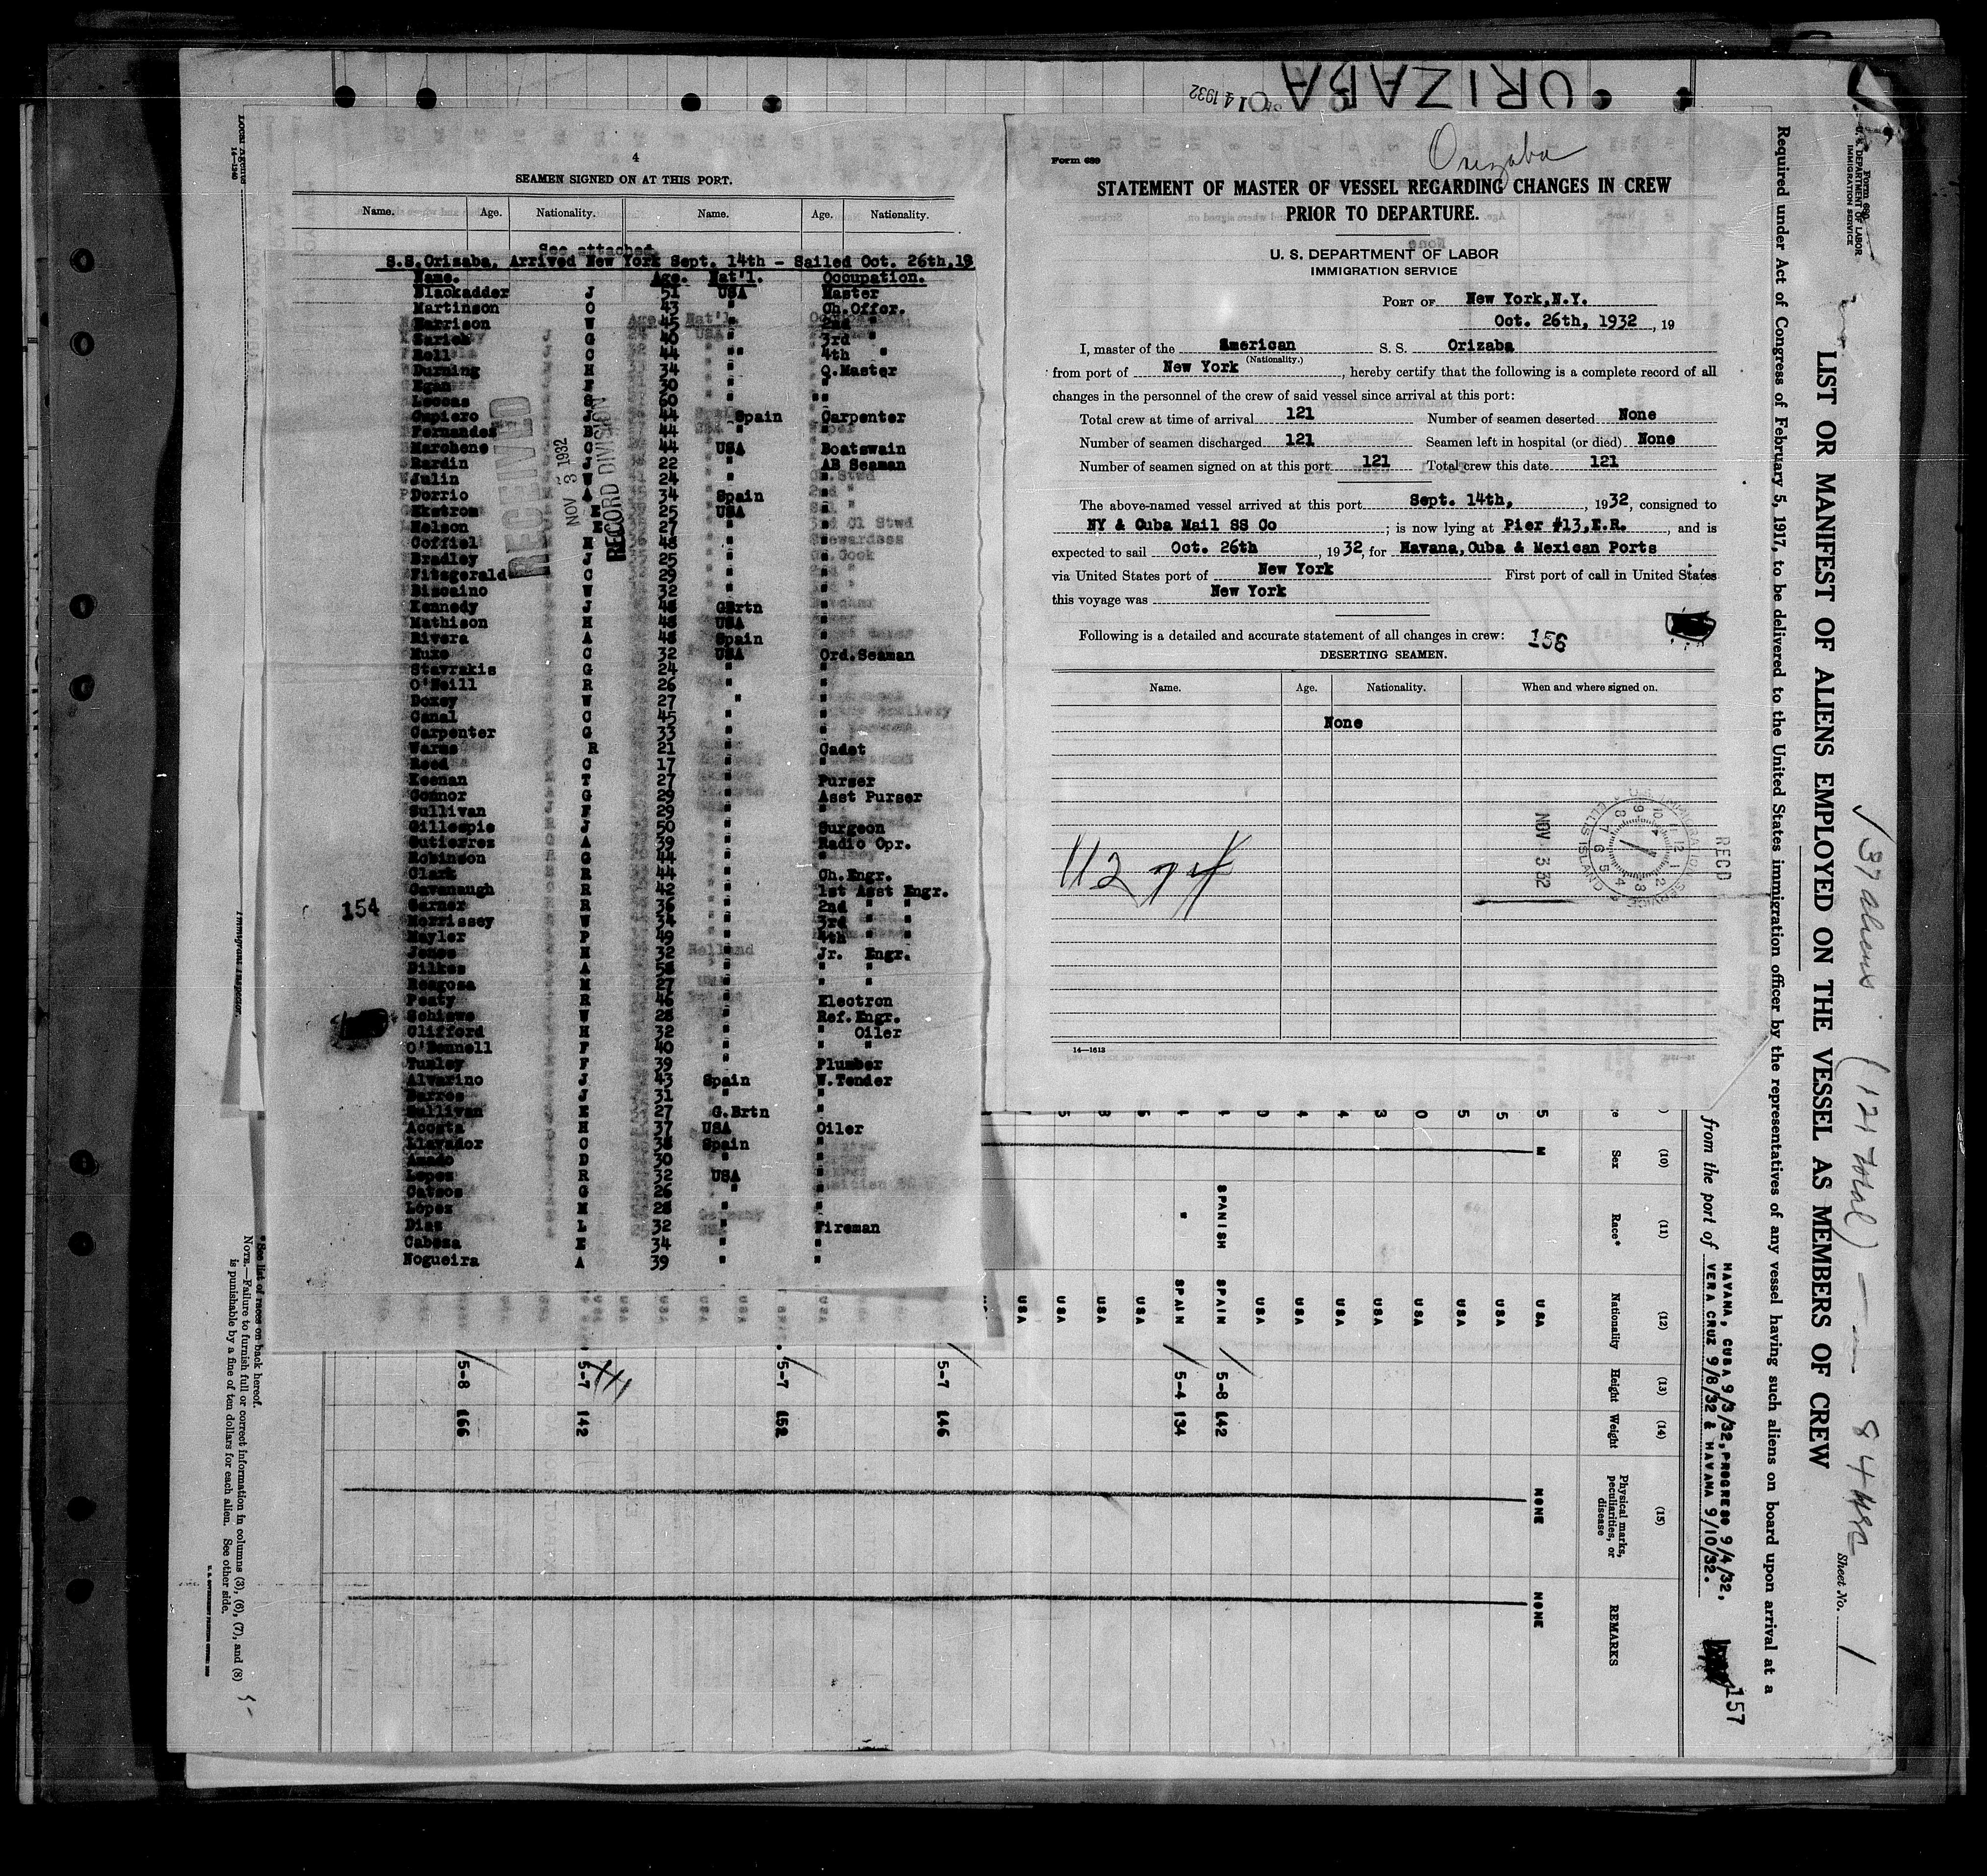 4
SEAMEN SIGNED ON AT THIS PORT.
Name. Age. Nationality. Name. Age. Nationality.
See attached
S.S.Orizaba, Arrived New York Sept. 14th - Sailed Oct. 26th,19
Name. Age. Nat'l. Occupation.
Blackadder J 51 USA Master
Martinson O 43 " Ch.Offcr.
Harrison W 45 " 2nd "
G 40 " 3rd "
Bell C 44 " 4th "
Durning H 34 " Q.Master
Egan F 30 " "
60 " "
J 44 Spain Carpenter
Fernandez B 44 "
Marchene C 44 USA Boatswain
Bardin J 22 " AB Seaman
Julin W 24 "
Dorrio A 34 Spain
Ekstrom E 25 USA
Nelson E 27 "
48 "
Bradley J 25 "
Fitzgerald C 29 "
Biscaino W 32 "
Kennedy J 48 GBrtn
Mathison H 48 USA
Rivera A 48 Spain
C 32 USA Ord.Seaman
Stavrakis G 24 " "
O'Neill R 26 " "
Doxey W 27 " "
Canal C 45 " "
Carpenter G 33 " "
Warms R 21 " Cadet
Reed C 17 " "
Keenan T 27 " Purser
Connor G 29 " Asst Purser
Sullivan F 29 " "
Gillespie J 50 " Surgeon
Gutierrez A 39 " Radio Opr.
Robinson G 44 " "
Clark R 44 " Ch.Engr.
Cavanaugh R 42 " 1st Asst Engr.
Garner R 36 " 2nd " "
Morrissey W 34 " 3rd " "
P 49 " 4th " "
Jones H 32 " Jr. Engr.
A 58 " " "
Reagosa M 27 " " "
Peaty R 46 " Electron
W 28 " Ref.Engr.
Clifford H 32 " " Oiler
O'Donnell F 40 " " "
Tunley F 39 " Plumber
Alvarino J 43 Spain W.Tender
Barros J 31 " "
Sullivan E 27 G.Brtn "
Acosta H 37 USA Oiler
Llavador C 38 Spain "
Amado D 30 " "
Lopez R 32 USA "
G 26 " "
Lopez M 28 " "
Diaz L 32 " Fireman
Cabeza E 34 " "
Nogueira A 39 " "
RECEIVED
NOV 3 1932
RECORD DIVISION
154
Local Agents
14—1240
Immigrant Inspector.
ORIZABA
14 1932
Orizaba
Form 689
STATEMENT OF MASTER OF VESSEL REGARDING CHANGES IN CREW
PRIOR TO DEPARTURE.
U. S. DEPARTMENT OF LABOR
IMMIGRATION SERVICE
PORT OF New York,N.Y.
Oct. 26th, 1932, 19
I, master of the American S. S. Orizaba
(Nationality.)
from port of New York, hereby certify that the following is a complete record of all
changes in the personnel of the crew of said vessel since arrival at this port:
Total crew at time of arrival 121 Number of seamen deserted None
Number of seamen discharged 121 Seamen left in hospital (or died) None
Number of seamen signed on at this port 121 Total crew this date 121
The above-named vessel arrived at this port Sept. 14th, 1932, consigned to
NY & Cuba Mail SS Co; is now lying at Pier #13,E.R., and is
expected to sail Oct. 26th, 1932, for Havana,Cuba & Mexican Ports
via United States port of New York First port of call in United States
this voyage was New York
Following is a detailed and accurate statement of all changes in crew: 156
DESERTING SEAMEN.
Name. Age. Nationality. When and where signed on.
None
112
REC'D
NOV 3 32
U.S. IMMIGRATION SERVICE
ELLIS ISLAND
14—1613
Form 680
U. S. DEPARTMENT OF LABOR
IMMIGRATION SERVICE
LIST OR MANIFEST OF ALIENS EMPLOYED ON THE VESSEL AS MEMBERS OF CREW
Required under Act of Congress of February 5, 1917, to be delivered to the United States immigration officer by the representatives of any vessel having such aliens on board upon arrival at a
from the port of HAVANA, CUBA 9/3/32, PROGRESO 9/4/32,
VERA CRUZ 9/8/32 & HAVANA 9/10/32.
37 aliens (121 total) — 84 usc
Sheet No. 1
157
(10) (11) (12) (13) (14) (15)
Sex Race* Nationality Height Weight Physical marks, peculiarities, or disease REMARKS
M USA NONE NONE
USA
USA
USA
USA
USA
USA
USA
SPANISH SPAIN 5-8 142
" SPAIN 5-4 134
USA
USA
USA
USA
5-7 146
5-7 152
5-7 142
5-8 166
*See list of races on back hereof.
NOTE.—Failure to furnish full or correct information in columns (3), (6), (7), and (8)
is punishable by a fine of ten dollars for each alien. See other side.